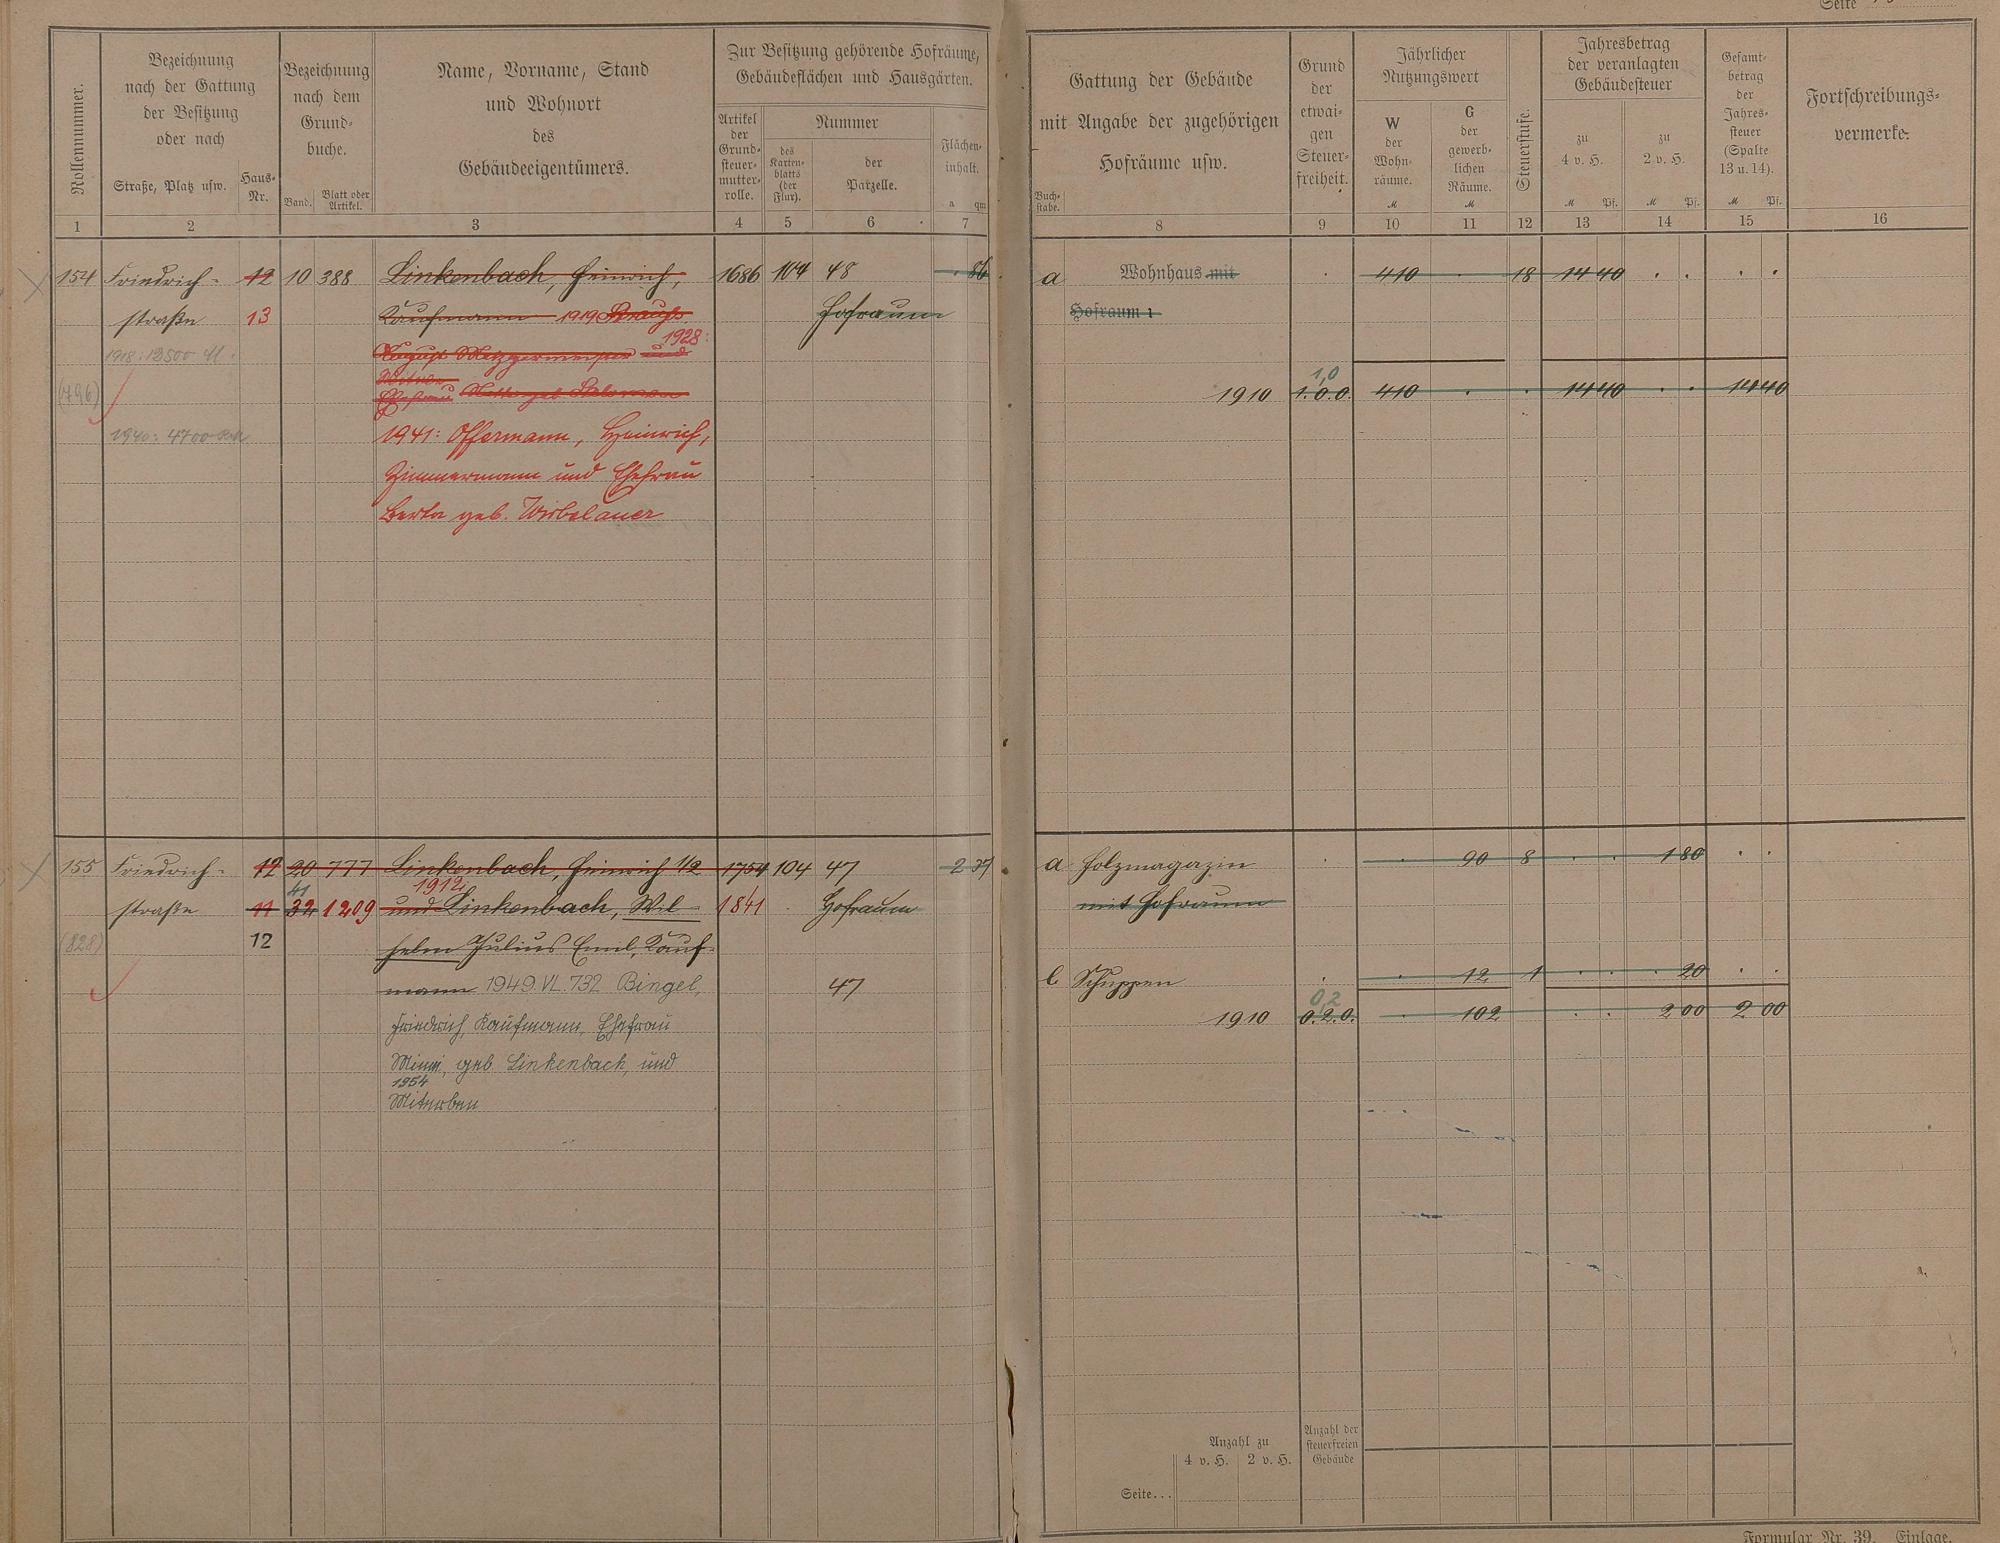 Seite
Rollennummer.
Bezeichnung
nach der Gattung
der Besitzung
oder nach
Straße, Platz usw.
Haus-
Nr.
Bezeichnung
nach dem
Grund-
buche.
Band.
Blatt oder
Artikel.
Name, Vorname, Stand
und Wohnort
des
Gebäudeeigentümers.
Zur Besitzung gehörende Hofräume,
Gebäudeflächen und Hausgärten.
Artikel
der
Grund-
steuer-
mutter-
rolle.
Nummer
des
Karten-
blatts
(der
Flur).
der
Parzelle.
Flächen-
inhalt.
a qm
Gattung der Gebäude
mit Angabe der zugehörigen
Hofräume usw.
Buch-
stabe.
Grund
der
etwai-
gen
Steuer-
freiheit.
Jährlicher
Nutzungswert
W
der
Wohn-
räume.
M
G
der
gewerb-
lichen
Räume.
M
Steuerstufe.
Jahresbetrag
der veranlagten
Gebäudesteuer
zu
4 v. H.
M Pf.
zu
2 v. H.
M Pf.
Gesamt-
betrag
der
Jahres-
steuer
(Spalte
13 u. 14).
M Pf.
Fortschreibungs-
vermerke.
1 2 3 4 5 6 7 8 9 10 11 12 13 14 15 16
154 Friedrich- 12 10 388 Linkenbach, Heinrich, 1686 104 48 . 86 a Wohnhaus mit . 410 . 18 14 40 . . . .
straße 13 Kaufmann 1919 Strauß Hofraum Hofraum 1
1918: 12500 M. August Metzgermeister und 1928:
Witwe
(496) Ehefrau geb. 1910 1.0.0. 1,0 410 . . 14 40 . . 14 40
1940: 4700 1941: Offermann, Heinrich,
Zimmermann und Ehefrau
Berta geb. Wirbelauer
155 Friedrich- 12 20 777 Linkenbach, Heinrich 1/2 1754 104 47 2 37 a Holzmagazin . . 90 8 . . 1 80 . .
straße 11 32 41 1209 1912 und Linkenbach, Wil- 1841 . Hofraum mit Hofraum
(828) 12 helm Julius Emil, Kauf-
mann 1949. VI. 732 Bingel, 47 b Schuppen . . 12 1 . . . 20 . .
Friedrich, Kaufmann, Ehefrau 1910 0.2.0. 0,2 . 102 . . 2 00 2 00
Minni, geb. Linkenbach, und
1954
Miterben
Anzahl zu
4 v. H. 2 v. H.
Anzahl der
steuerfreien
Gebäude
Seite...
Formular Nr. 39. Einlage.